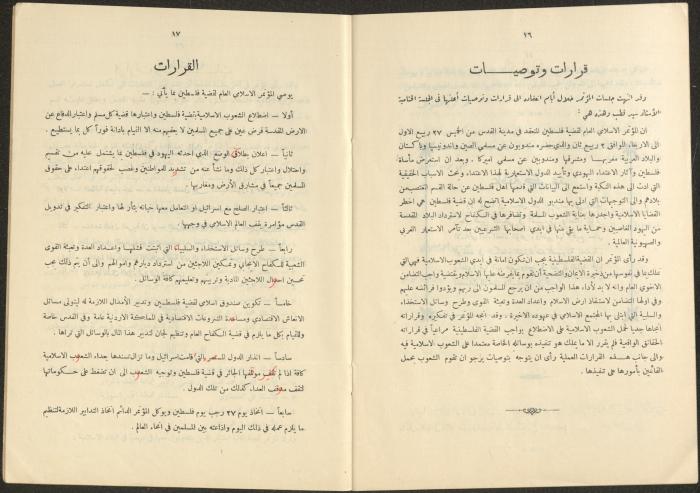 ١٦
قرارات وتوصيـــات
وقد انتهت جلسات المؤتمر فحول أيام انعقاده الى قرارات وتوصيات أعلنها في الجلسة الختامية
الأستاذ سيد قطب وهذه هي :
ان المؤتمر الاسلامي العام لقضية فلسطين المنعقد في مدينة القدس من الخميس ٢٧ ربيع الاول
الى الاربعاء الموافق ٢ ربيع ثان والذي حضره مندوبون عن مسلمي الصين واندونيسيا وباكستان
والبلاد العربية مغربها ومشرقها ومندوبين عن مسلمي اميركا . وبعد ان استعرض مأساة
فلسطين وآثار الاعتداء اليهودي وتأييد الدول الاستعمارية لهذا الاعتداء وبحث الاسباب الحقيقية
التي ادت الى هذه النكبة واستمع الى البيانات التي قدمها أهل فلسطين عن حالة القسم المغتصب من
بلادهم والى التوجيهات التي ادلى بها مندوبو الدول الاسلامية اتضح له ان قضية فلسطين هي اخطر
القضايا الاسلامية واجدرها بعناية الشعوب المسلمة وتضافرها في الكفاح لاسترداد البلاد المقدسة
من اليهود الغاصبين وحماية ما بقي منها في ايدي أصحابها الشرعيين بعد تآمر الاستعمار الغربي
والصهيونية العالمية .
وقد رأى المؤتمر ان القضية الفلسطينية يجب ان تكون امانة في ايدي الشعوب الاسلامية فهي التي
تملك بما في نفوسها من ذخيرة الايمان والتضحية أن تقوم بما يفرضه عليها الاسلام وتقتضيه واجب التضامن
الاخوي العام وانه لا بد لأداء هذا الواجب من ان يرجع المسلمون الى ربهم ويؤدوا فرائضه عليهم
وفي اولها التضامن لاستنقاذ ارض الاسلام واعداد العدة وتعبئة القوى وطرح وسائل الاستخذاء
والسلبية التي ابتلي بها المجتمع الاسلامي في عهوده الاخيرة . وقد اتجه المؤتمر في تفكيره وقراراته
اتجاها جديا لحمل الشعوب الاسلامية على الاضطلاع بواجب القضية الفلسطينية مراعياً في قراراته
الحقائق الواقعة فلم يقرر الا ما يملك هو تنفيذه بوسائله الخاصة معتمدا على الشعوب الاسلامية فيه
والى جانب هـــذه القرارات العملية رأى ان يتوجه بتوصيات يرجو ان تقوم الشعوب بحمل
القائمين بأمورها على تنفيذها .
١٧
القرارات
يوصي المؤتمر الاسلامي العام لقضية فلسطين بما يأتي : —
أولا — اضطلاع الشعوب الاسلامية بقضية فلسطين واعتبارها قضية كل مسلم واعتبار الدفاع عن
الارض المقدسة فرض عين على جميع المسلمين لا يعفيهم منه الا القيام بأدائه فوراً كل بما يستطيع .
ثانياً — اعلان بطلان الوضع الذي احدثه اليهود في فلسطين بما يشتمل عليه من تقسيم
واحتلال واعتبار كل ذلك وما نشأ عنه من تشريد للمواطنين وغصب لحقوقهم اعتداء على حقوق
المسلمين جميعاً في مشارق الأرض ومغاربها .
ثالثاً — اعتبار الصلح مع اسرائيل او التعامل معها خيانه يأثر لها واعتبار التفكير في تدويل
القدس مؤامرة يقف العالم الاسلامي في وجهها .
رابعاً — طرح وسائل الاستخذاء والسلبية التي اثبتت فشلها واعداد العدة وتعبئة القوى
الشعبية للكفاح الايجابي وتمكين اللاجئين من استرداد ديارهم واموالهم والى أن يتم ذلك يجب
تحسين احوال اللاجئين المادية وتربيتهم وتعليمهم كافة الوسائل .
خامساً — تكوين صندوق اسلامي لقضية فلسطين وتدبير الأموال اللازمة له ليتولى مسائل
الانعاش الاقتصادي ومساعدة المشروعات الاقتصادية في المملكة الاردنية عامة وفي القدس خاصة
وللقيام بكل ما يلزم في قضية الكفاح العام وتنظيم لجان لتدبير هذا المال بالوسائل التي تراها .
سادساً — انذار الدول التي قامت اسرائيل وما تزال تسندها بعداء الشعوب الاسلامية
كافة اذا لم موقفها الجائر في قضية فلسطين وتوجيه الشعوب الى ان تضغط على حكوماتها
لتقف موقف العداء كذلك من تلك الدول .
سابعاً — اتخاذ يوم ٢٧ رجب يوم فلسطين ويوكل المؤتمر الدائم اتخاذ التدابير اللازمة لتنظيم
ما يلزم عمله في ذلك اليوم واذاعته بين المسلمين في انحاء العالم .